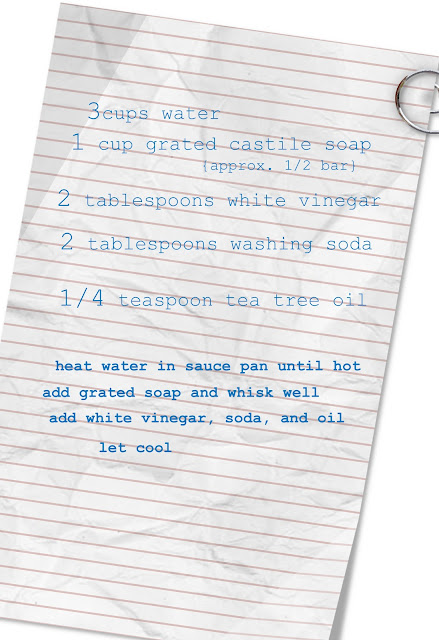 3cups water
1 cup grated castile soap
{approx. 1/2 bar}
2 tablespoons white vinegar
2 tablespoons washing soda
1/4 teaspoon tea tree oil
heat water in sauce pan until hot
add grated soap and whisk well
add white vinegar, soda, and oil
let cool